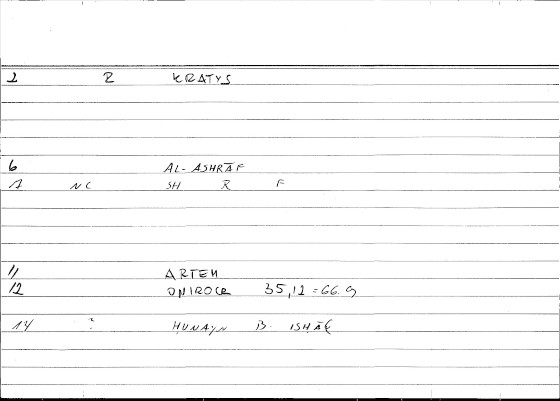 2 R KRATYS
6 AL-ASHRĀF
1 NC SH R F
11 ARTEM
12 ONIROCR 35,12 = 66.9
14 ? HUNAYN B ISHĀḲ